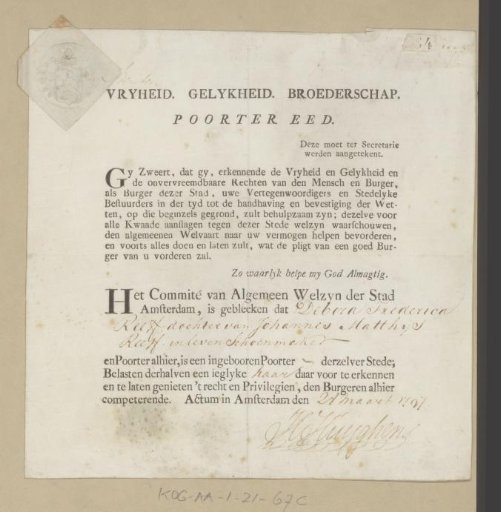 VRYHEID. GELYKHEID. BROEDERSCHAP.
POORTER EED.
Deze moet ter Secretarie
werden aangetekent.
Gy Zweert, dat gy, erkennende de Vryheid en Gelykheid en
de onvervreemdbaare Rechten van den Mensch en Burger,
als Burger dezer Stad, uwe Vertegenwoordigers en Stedelyke
Bestuurders in der tyd tot de handhaving en bevestiging der Wet-
ten, op die beginzels gegrond, zult behulpzaam zyn; dezelve voor
alle Kwaade aanslagen tegen dezer Stede welzyn waarschouwen,
den algemeenen Welvaart naar uw vermogen helpen bevorderen,
en voorts alles doen en laten zult, wat de pligt van een goed Bur-
ger van u vorderen zal.
Zo waarlyk helpe my God Almagtig.
Het Commité van Algemeen Welzyn der Stad
Amsterdam, is gebleeken dat Debora Frederica
Reeff dochter van Johannes Matthys
Reeff in leven Schoenmaker
en Poorter alhier, is een ingebooren Poorter derzelver Stede;
Belasten derhalven een ieglyke haar daar voor te erkennen
en te laten genieten 't recht en Privilegien, den Burgeren alhier
competerende. Actum in Amsterdam den maart 1797
KOG-AA-1-21-67C